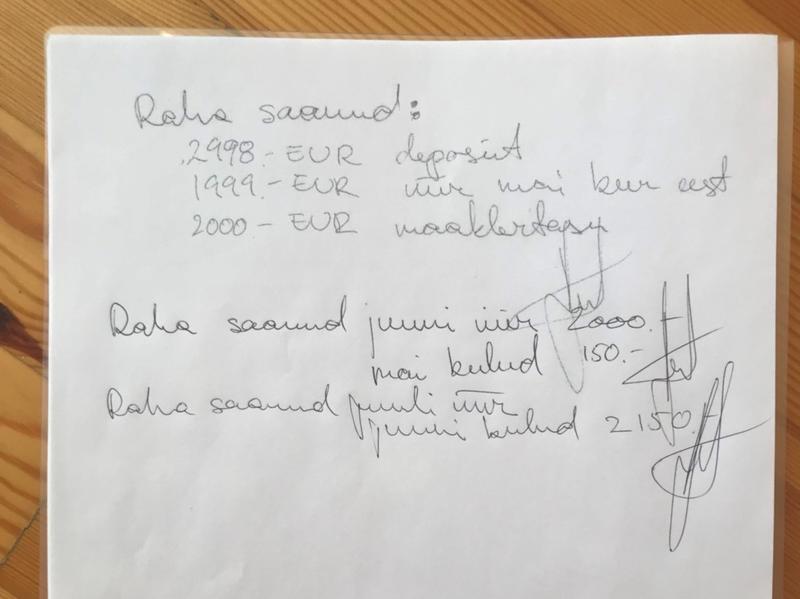 Raha saanud:
2998.- EUR deposiit
1999.- EUR üür mai kuu eest
2000 - EUR maaklertasu
Raha saanud juuni üür 2000.-
mai kulud 150.-
Raha saanud juuli üür
juuni kulud 2150.-